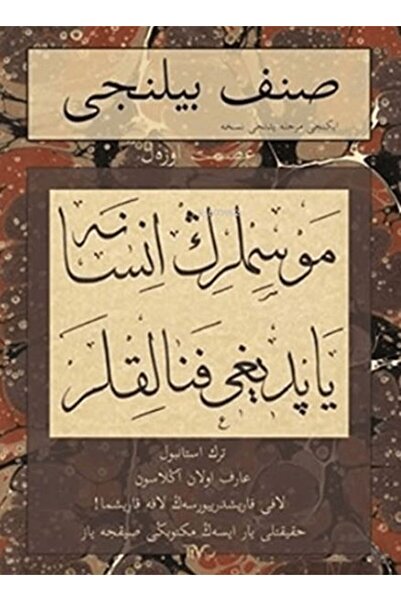 صنف بیلنجی
ایكنجی مرحله یدنجی نسخه
عصمت اوزل
موسملرڭ انسانه
یاپدیغی فنالقلر
ترك استانبول
عارف اولان اڭلاسون
لافی قاریشدیریورسەڭ لافه قاریشما!
حقیقتلی یار ایسەڭ مكتوبڭی صیقجه یاز